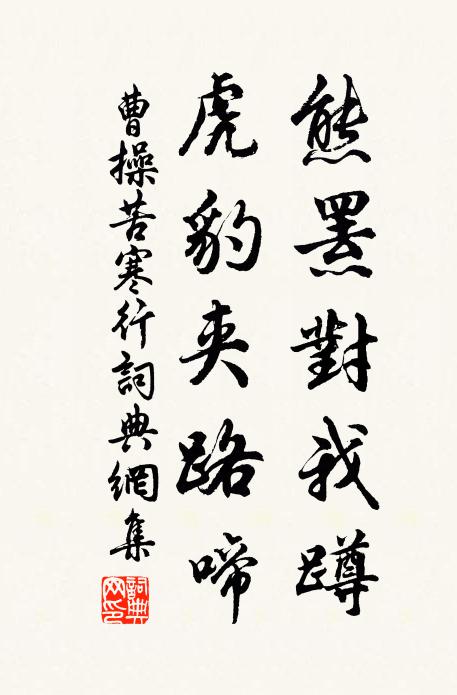 熊罴對我蹲
虎豹夾路啼
曹操苦寒行詞典網集
詞典
网印